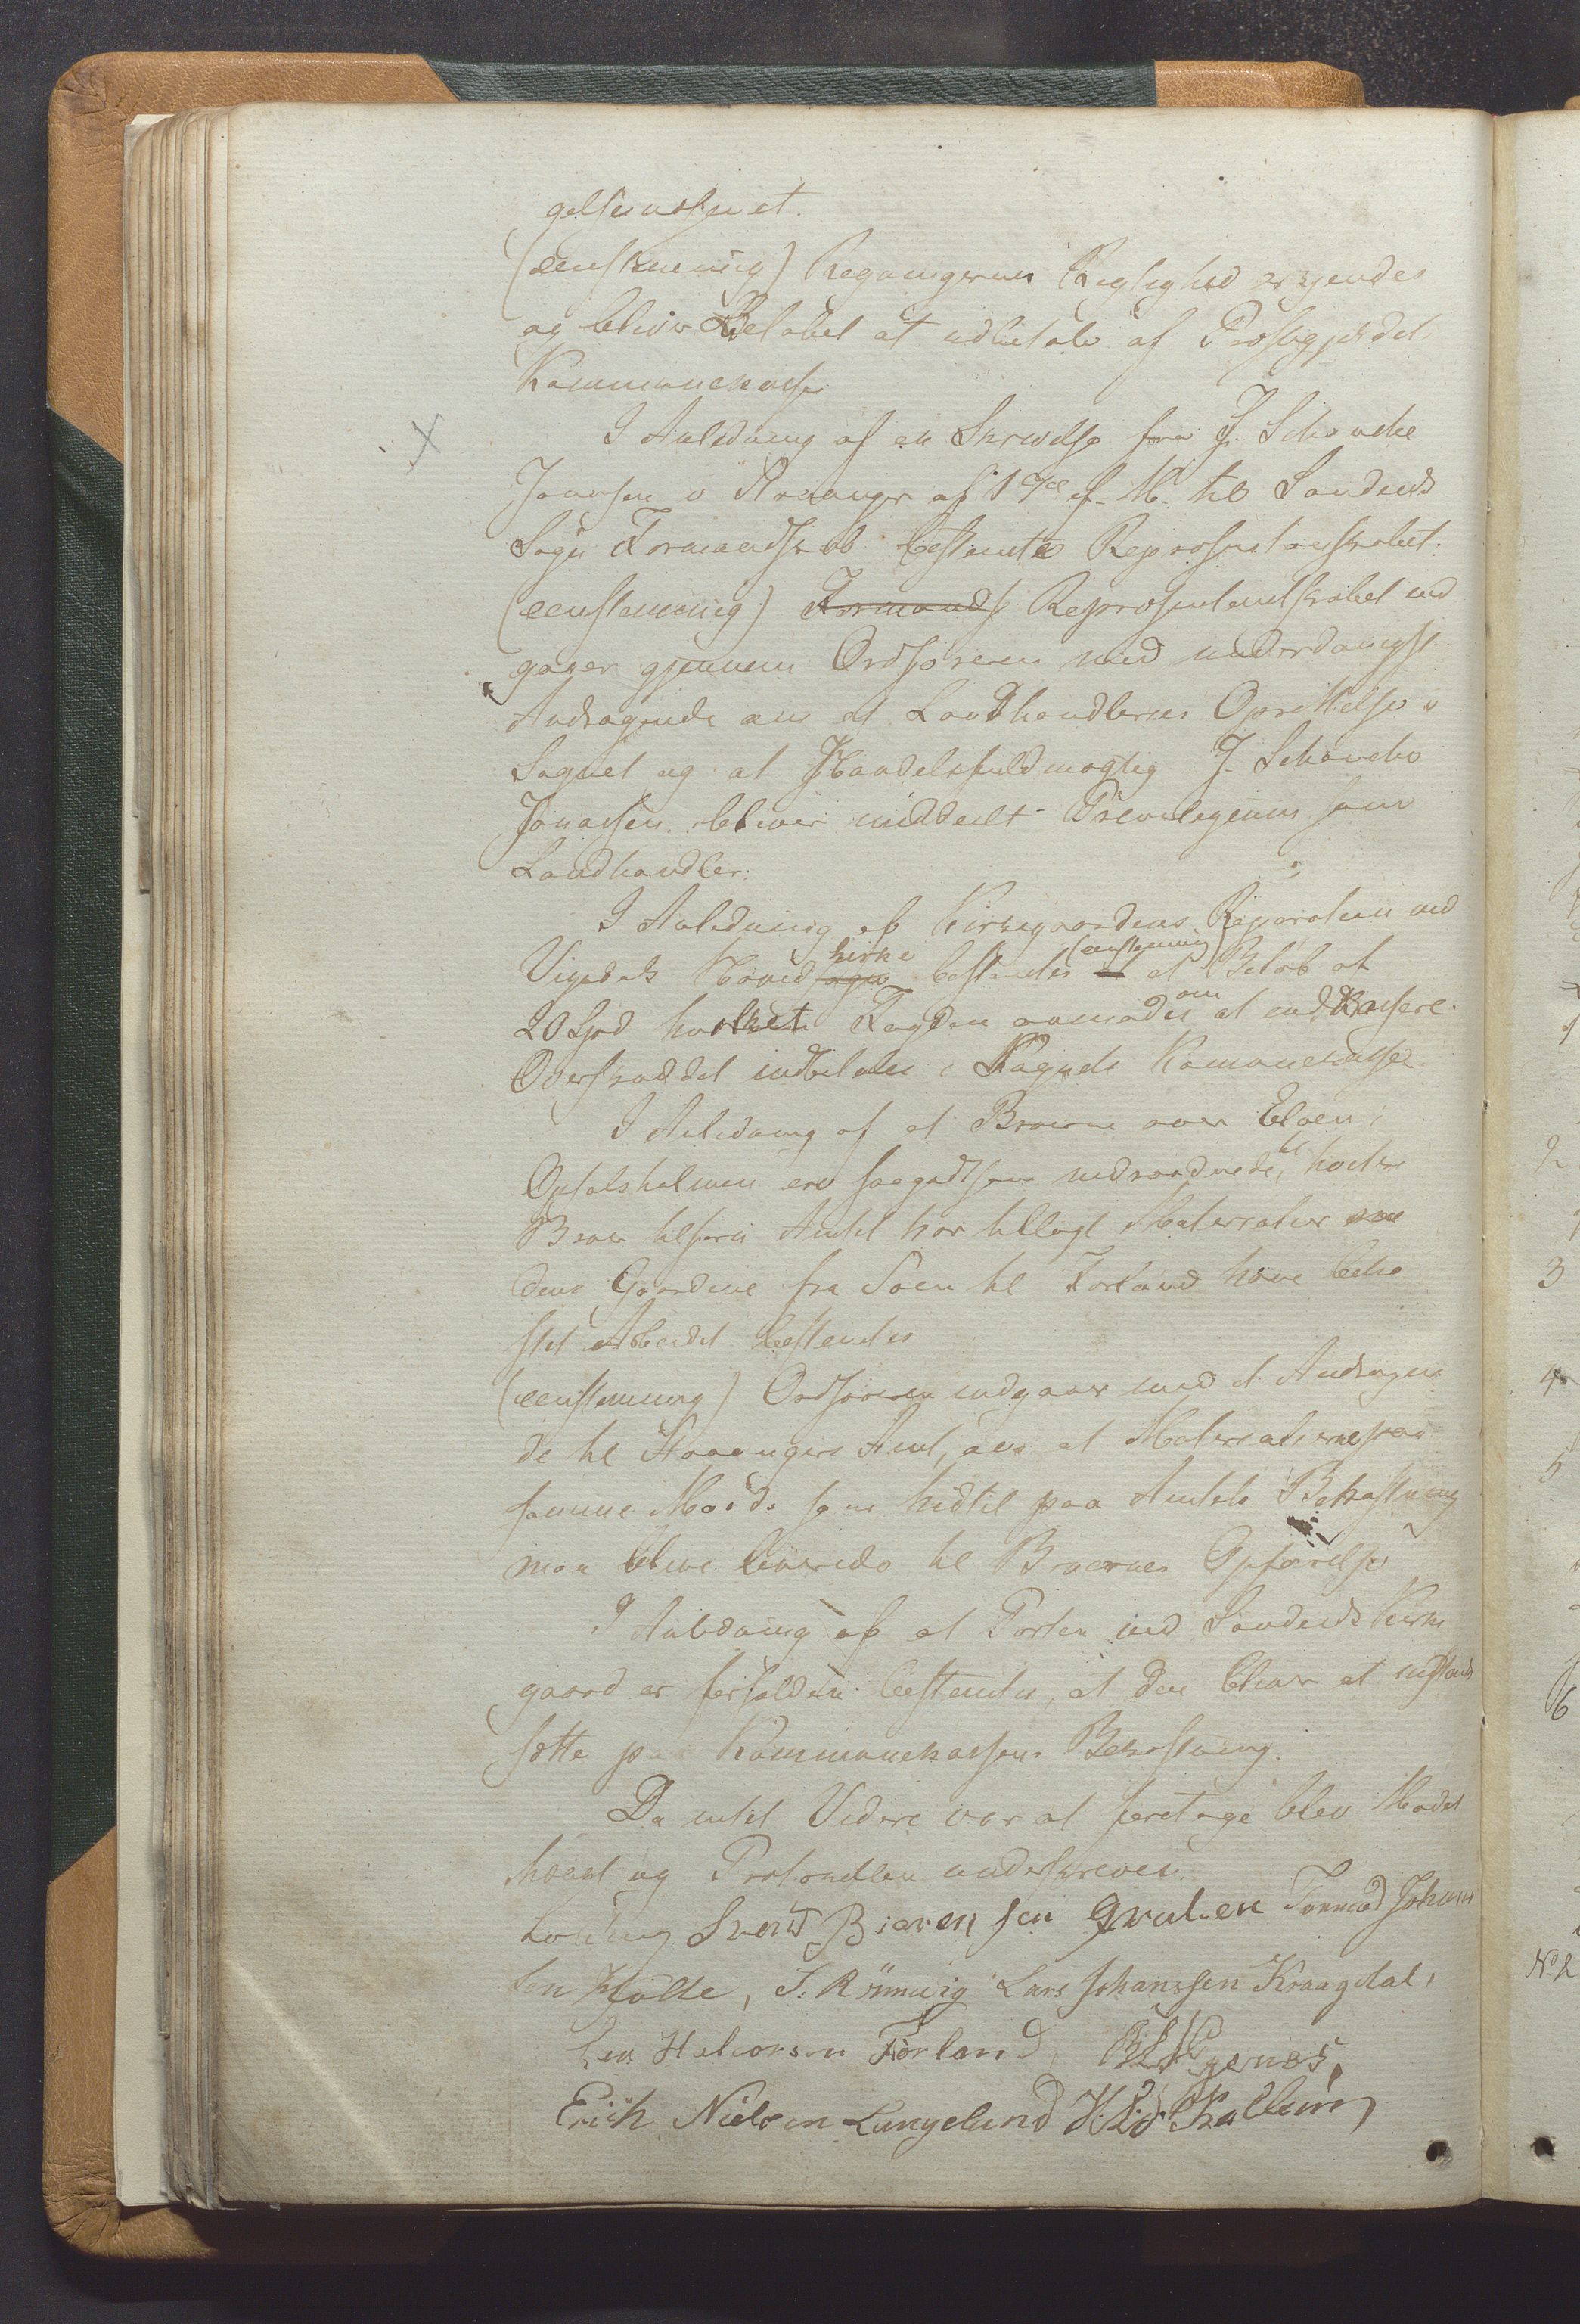 (eenstemmig) Regningernes Rigtighed erkjendes
og bliver Beløbet at udbetale af Præstegjeldet
Kommunekasse
X I Anledning af en Skrivelse fra J. Schanche
Jonassen i Stavanger af 17de f. M. til Sandeids
Sogns Formandskab besluttede Repræsentantskabet:
(eenstemmig) Formands Repræsentantskabet ind
gaaer gjennem Ordføreren med underdanigst
Andragende om at Landhandleries Oprettelse i
Sognet og at Handelsfuldmægtig J. Schanche
Jonassen bliver meddeelt Privilegium som
Landhandler.
I Anledning af Kirkegaardens Reparation ved
Vigedals Hovedsogn kirke bestemtes et (eenstemmig) et Beløb af
20 Spd hvilket Fogden anmodes om at indkassere.
Overskuddet indbetales i Sognets Kommunekasse
I Anledning af at Broerne over Elven i
Opsalsholmen ere saagodtsom nedraadnede, til hvilke
Broer tilforn Amtet har tillagt Materialier me
dens Gaardene fra Søen til Førland have beko
stet Arbeidet besluttes
(eenstemmig) Ordføreren indgaaer med et Andragen
de til Stavangers Amt, om at Materialierne paa
samme Maade som hidtil paa Amtets Bekostning
maa blive leverede til Broernes Opførelse
I Anledning af at Porten ved Sandeids Kirke
gaard er forfalden besluttes, at den bliver at istand
sætte paa Kommunekassens Bekostning.
Da intet Videre var at foretage blev Mødet
hævet og Protocollen underskreven.
Svend Biørensen Tormod Johan
sen, S. Rønnevig Lars Johanssen Kraagdal,
Halvorsen Førland,
Erich Nielsen Langeland